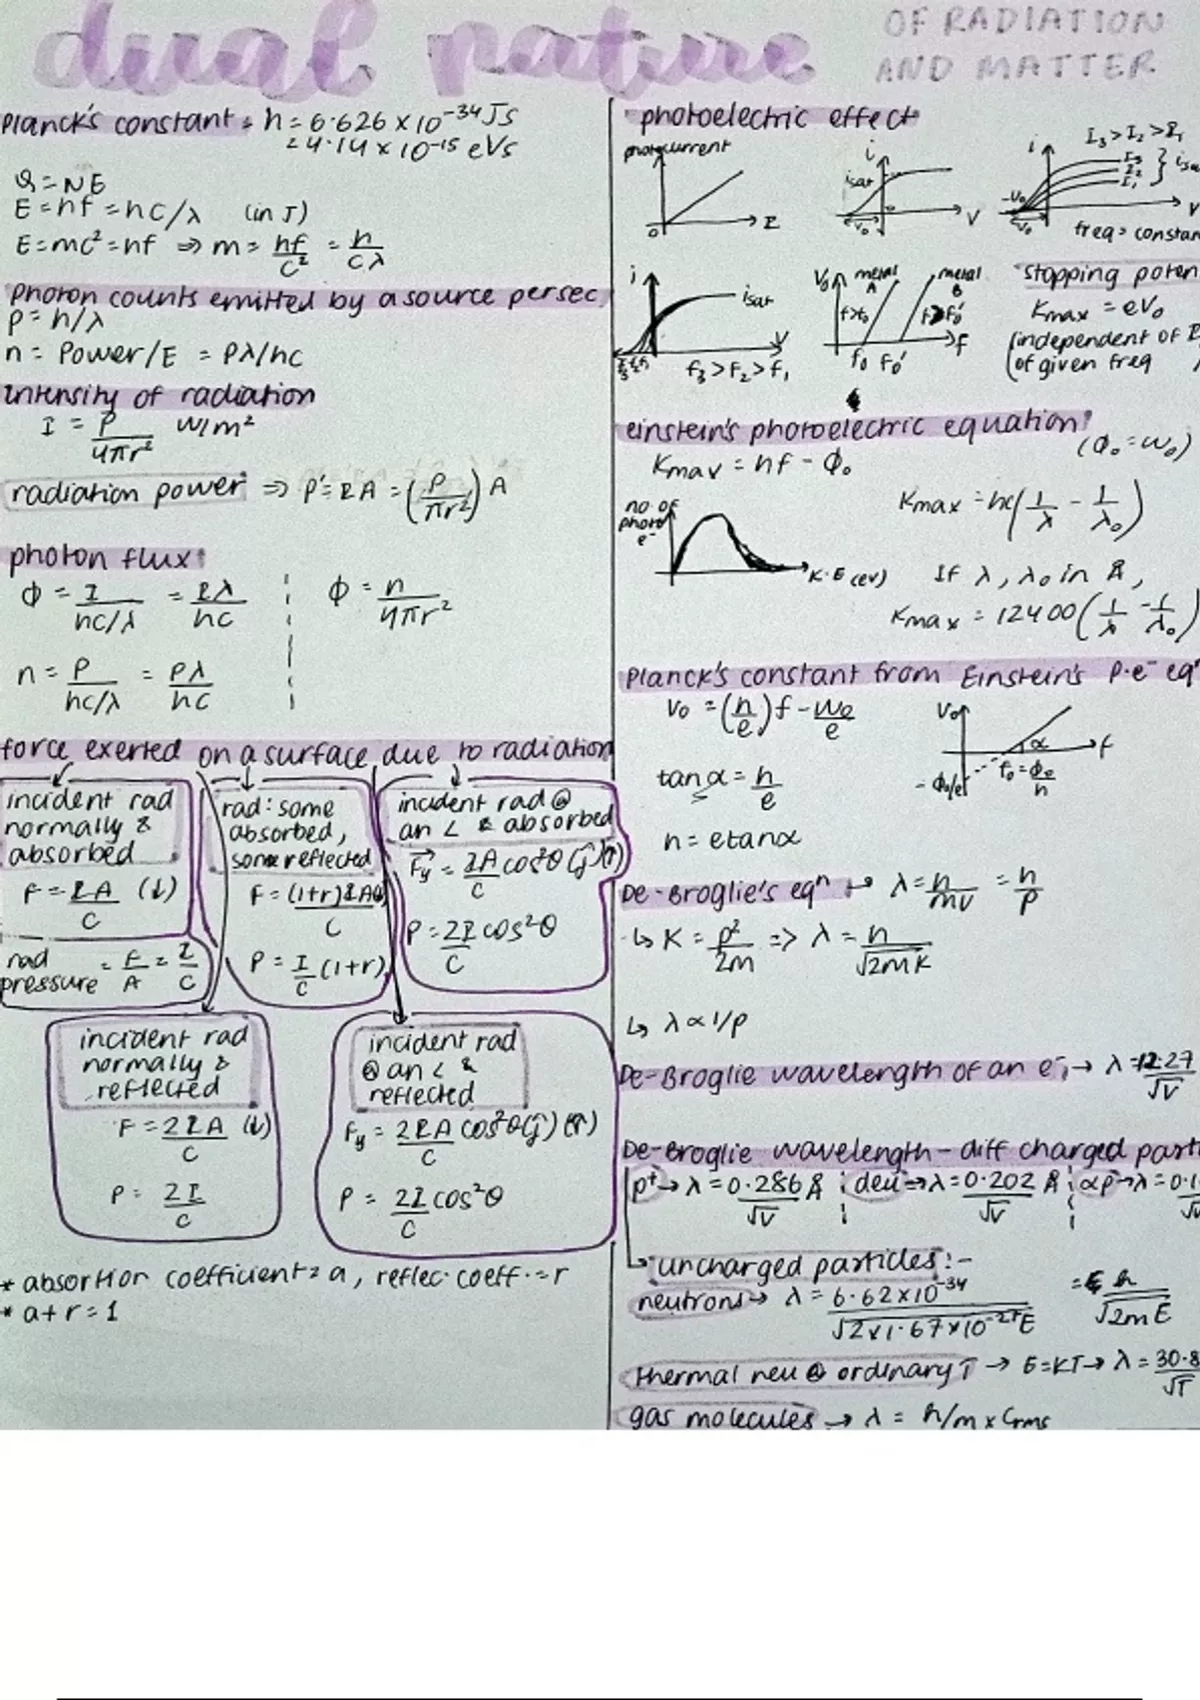 dual nature
OF RADIATION
AND MATTER
Planck's constant = h = 6.626 x 10⁻³⁴ Js
= 4.14 x 10⁻¹⁵ eVs
E = hf = hc/λ (in J)
E = mc² = hf ⇒ m = hf/c² = h/cλ
Photon counts emitted by a source per sec
p = h/λ
n = Power/E = Pλ/hc
Intensity of radiation
I = P/4πr² W/m²
radiation power ⇒ P' = IA = (P/πr²) A
photon flux:
Φ = I/hc/λ = Iλ/hc
Φ = n/4πr²
n = P/hc/λ = Pλ/hc
force exerted on a surface due to radiation
incident rad
normally &
absorbed
F = IA/c (↓)
rad
pressure = F/A = I/c
rad: some
absorbed,
some reflected
F = (1+r)IA/c
P = I/c (1+r)
incident rad @
an ∠ & absorbed
Fy = IA/c cos²θ (ĵ)
P = 2I/c cos²θ
incident rad
normally &
reflected
F = 2IA/c (↓)
P = 2I/c
incident rad
@ an ∠ &
reflected
Fy = 2IA/c cos²θ(ĵ)
P = 2I/c cos²θ
* absortion coefficient = a, reflec. coeff. = r
* a + r = 1
photoelectric effect
photocurrent
0
I
i
isat
V₀
V
I₃ > I₂ > I₁
i
I₃
I₂
I₁
-V₀
V₀
V
freq = constan
i
isat
V
f₃ > f₂ > f₁
V₀
metal
A
metal
B
f>f₀
f>f₀'
f₀ f₀'
f
stopping poten
Kmax = eV₀
(independent of I
of given freq
einstein's photoelectric equation:
(Φ₀ = W₀)
Kmax = hf - Φ₀
Kmax = hc(1/λ - 1/λ₀)
no of
photo
e⁻
K.E (eV)
If λ, λ₀ in Å,
Kmax = 12400 (1/λ - 1/λ₀)
Planck's constant from Einstein's p.e⁻ eqⁿ
V₀ = (h/e)f - W₀/e
V₀
α
f
f₀ = Φ₀/h
-Φ₀/e
tanα = h/e
h = etanα
De-Broglie's eqⁿ → λ = h/mv = h/p
↳ K = p²/2m ⇒ λ = h/√2mK
↳ λ ∝ 1/p
De-Broglie wavelength of an e⁻, → λ = 12.27/√V
De-Broglie wavelength - diff charged parti
p⁺ → λ = 0.286 Å/√V
deu → λ = 0.202 Å/√V
αp → λ = 0.1
uncharged particles:-
neutrons → λ = 6.62x10⁻³⁴/√2x1.67x10⁻²⁷E
= h/√2mE
thermal neu @ ordinary T → E = KT → λ = 30.8/√T
gas molecules → λ = h/m x Crms